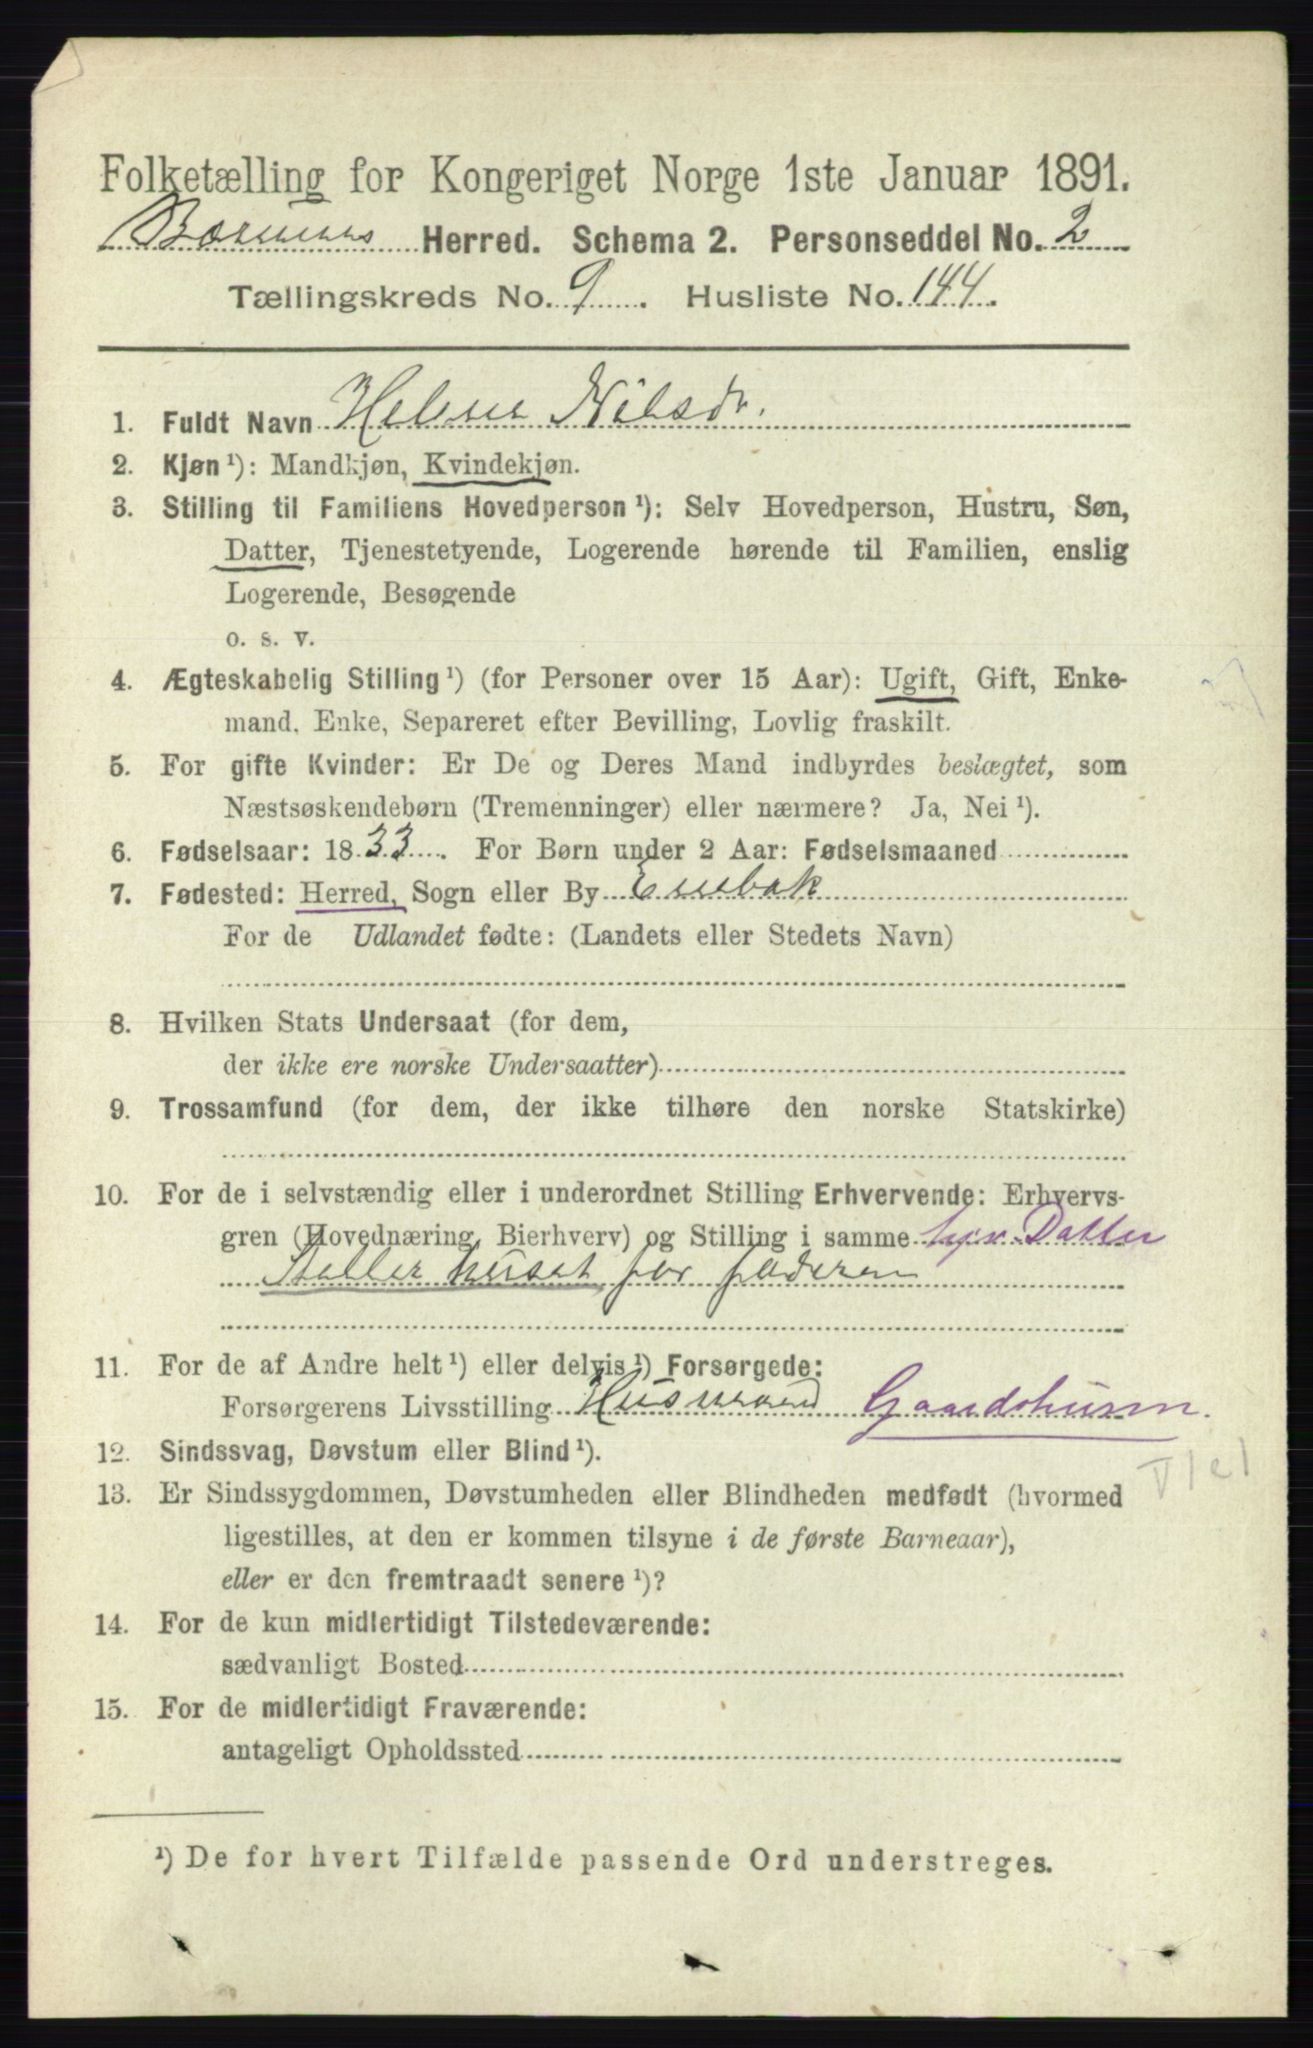 Folketælling for Kongeriget Norge 1ste Januar 1891.
Bærums Herred. Schema 2. Personseddel No. 2
Tællingskreds No. 9. Husliste No. 144.
1. Fuldt Navn Helene Nilsdr.
2. Kjøn¹): Mandkjøn, Kvindekjøn.
3. Stilling til Familiens Hovedperson¹): Selv Hovedperson, Hustru, Søn,
Datter, Tjenestetyende, Logerende hørende til Familien, enslig
Logerende, Besøgende
o. s. v.
4. Ægteskabelig Stilling¹) (for Personer over 15 Aar): Ugift, Gift, Enke-
mand, Enke, Separeret efter Bevilling, Lovlig fraskilt.
5. For gifte Kvinder: Er De og Deres Mand indbyrdes beslægtet, som
Næstsøskendebørn (Tremenninger) eller nærmere? Ja, Nei¹).
6. Fødselsaar: 1833. For Børn under 2 Aar: Fødselsmaaned
7. Fødested: Herred, Sogn eller By Enebak
For de Udlandet fødte: (Landets eller Stedets Navn)
8. Hvilken Stats Undersaat (for dem,
der ikke ere norske Undersaatter)
9. Trossamfund (for dem, der ikke tilhøre den norske Statskirke)
10. For de i selvstændig eller i underordnet Stilling Erhvervende: Erhvervs-
gren (Hovednæring, Bierhverv) og Stilling i samme Datter
Steller huset for faderen
11. For de af Andre helt¹) eller delvis¹) Forsørgede:
Forsørgerens Livsstilling Husmand Gaardshusm.
12. Sindssvag, Døvstum eller Blind¹).
13. Er Sindssygdommen, Døvstumheden eller Blindheden medfødt (hvormed
ligestilles, at den er kommen tilsyne i de første Barneaar),
eller er den fremtraadt senere¹)?
14. For de kun midlertidigt Tilstedeværende:
sædvanligt Bosted
15. For de midlertidigt Fraværende:
antageligt Opholdssted
¹) De for hvert Tilfælde passende Ord understreges.